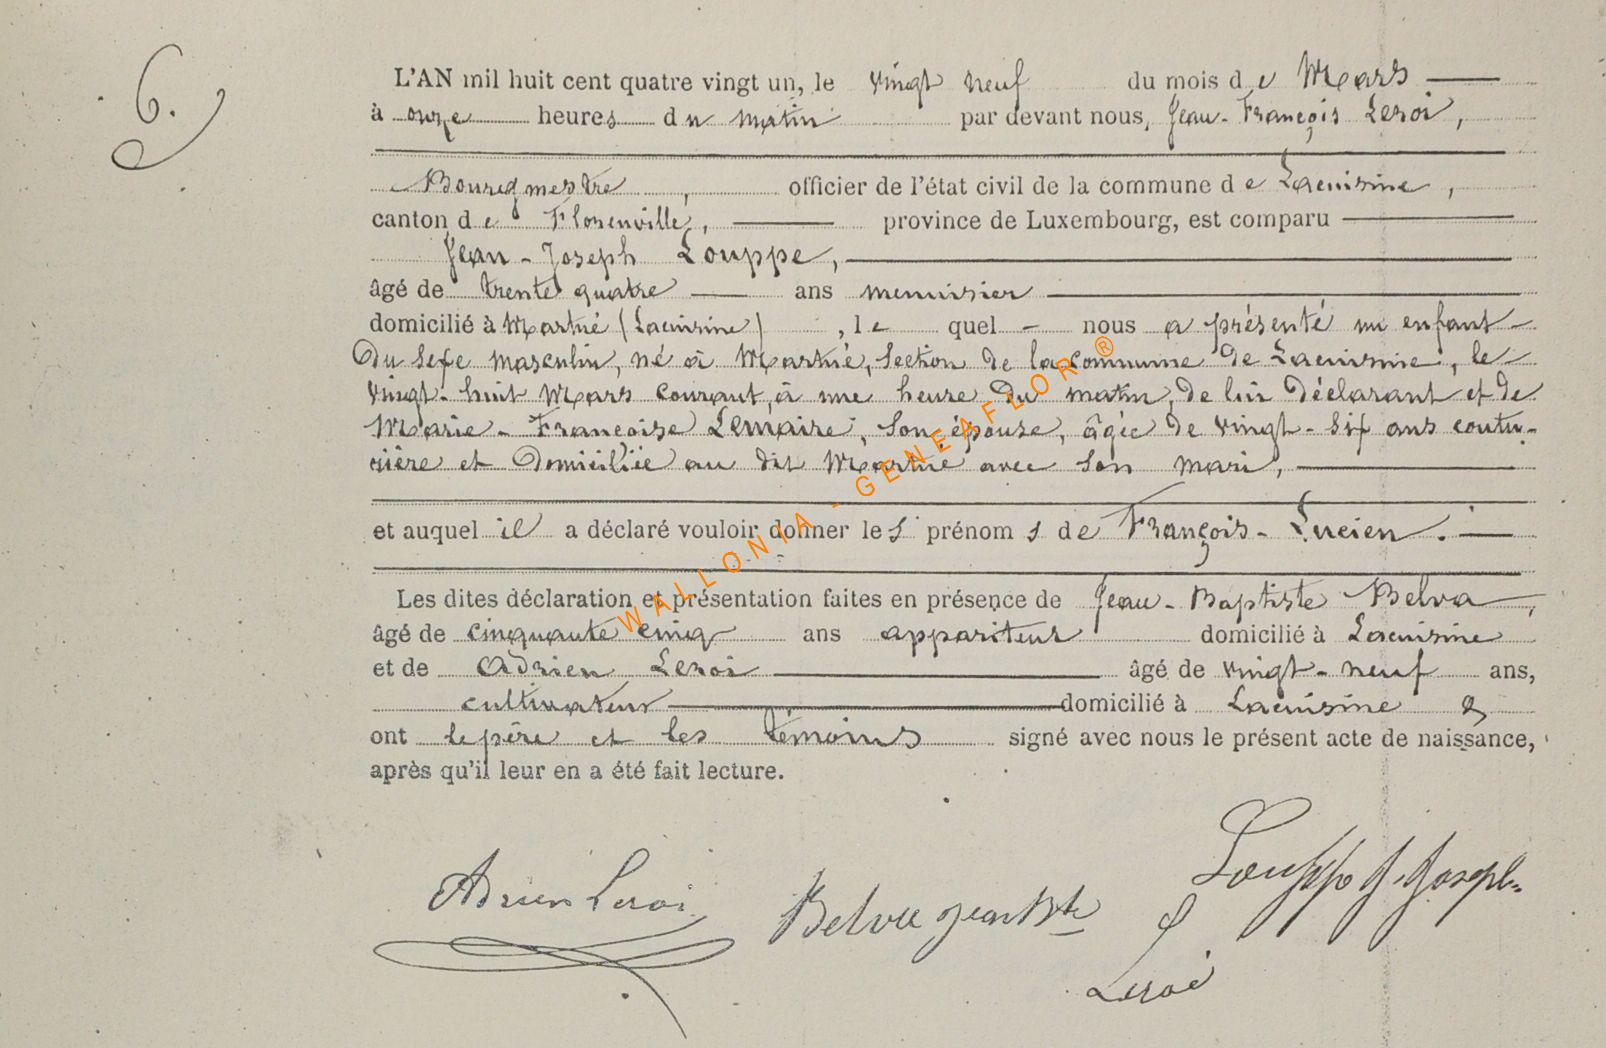 6.
L'AN mil huit cent quatre vingt un, le vingt neuf du mois de Mars
à onze heures du matin par devant nous, Jean-François Leroi,
Bourgmestre, officier de l'état civil de la commune de Lacuisine,
canton de Florenville, province de Luxembourg, est comparu
Jean-Joseph Louppe,
âgé de trente quatre ans menuisier
domicilié à Martué (Lacuisine), lequel nous a présenté un enfant
du sexe masculin, né à Martué, section de la commune de Lacuisine, le
vingt-huit Mars courant, à une heure du matin, de lui déclarant et de
Marie-Françoise Lemaire, son épouse, âgée de vingt-six ans coutu-
rière et domiciliée au dit Martué avec son mari,
et auquel il a déclaré vouloir donner les prénoms de François-Lucien.
Les dites déclaration et présentation faites en présence de Jean-Baptiste Belva,
âgé de cinquante cinq ans appariteur domicilié à Lacuisine
et de Adrien Leroi âgé de vingt-neuf ans,
cultivateur domicilié à Lacuisine &
ont le père et les témoins signé avec nous le présent acte de naissance,
après qu'il leur en a été fait lecture.
WALLONIA - GENEAFLOR ®
Adrien Leroi Belva jean Bte Louppe J. Joseph
Leroi